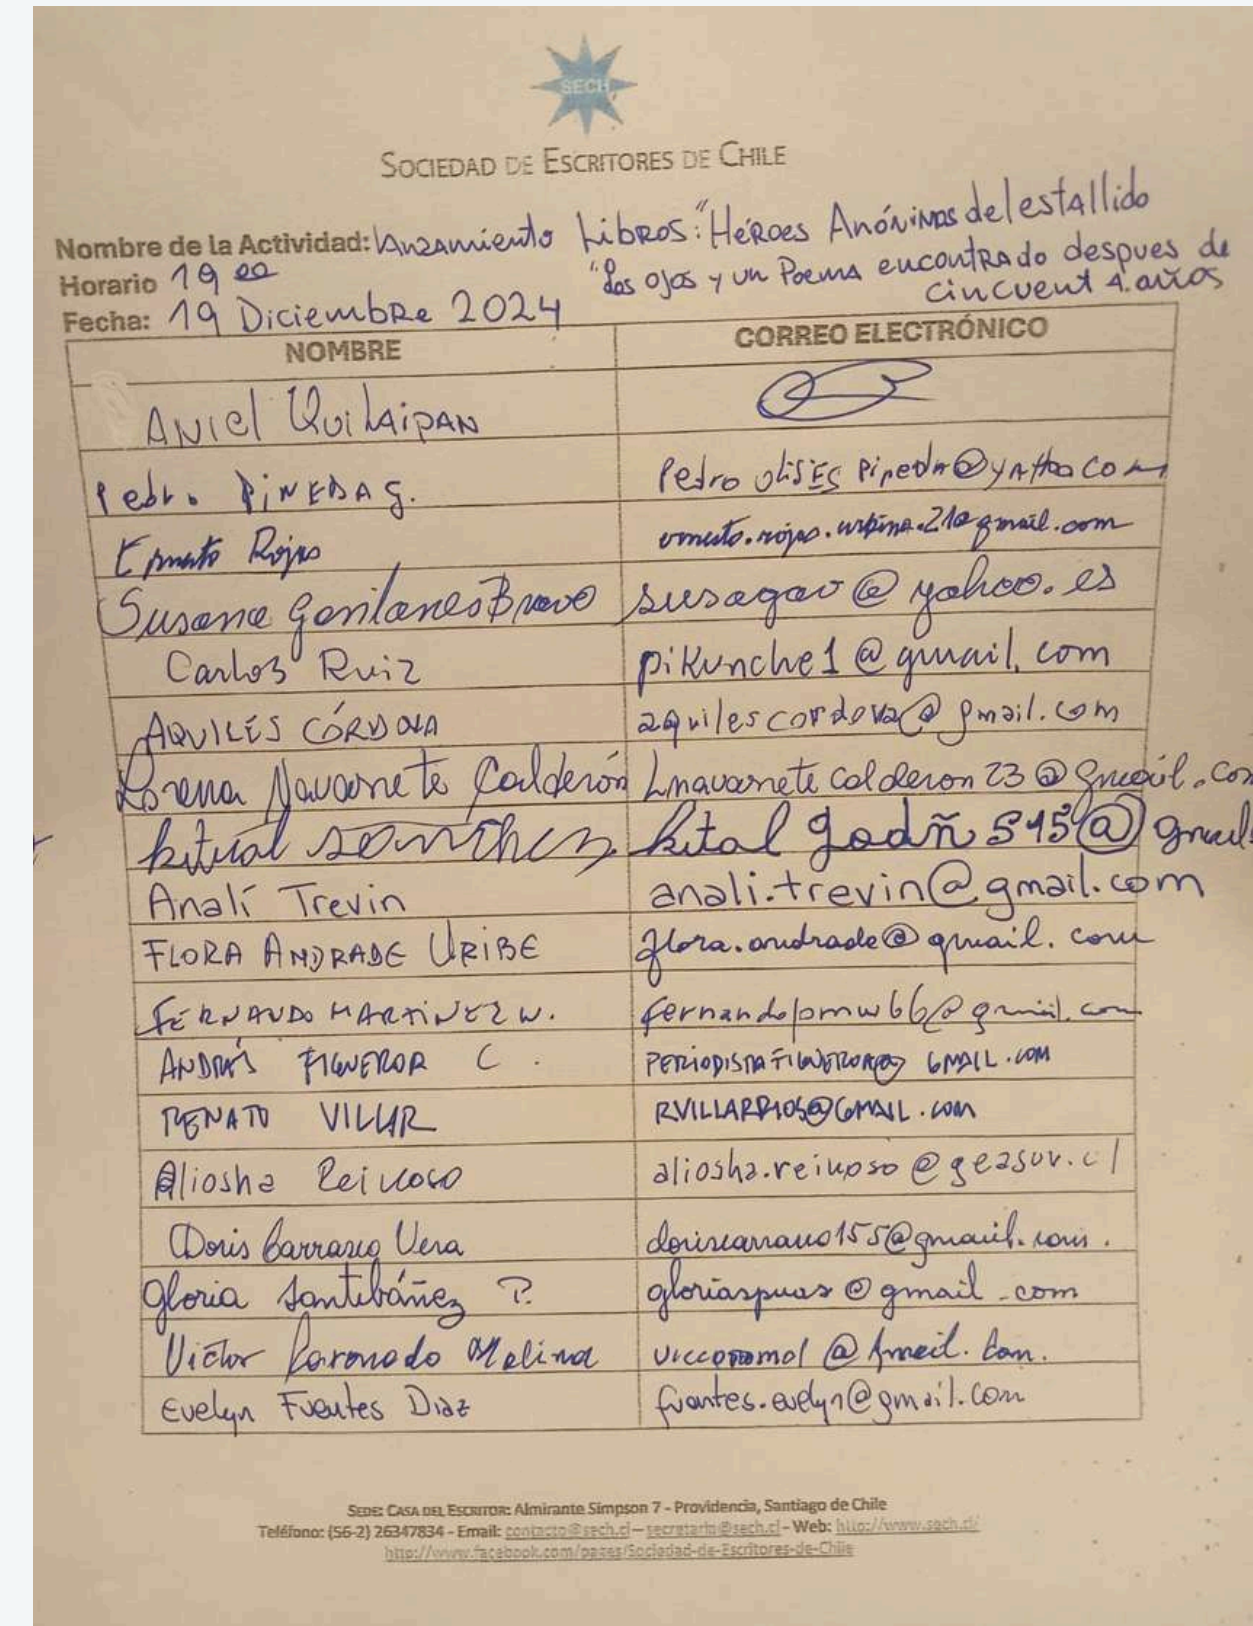 SECH
SOCIEDAD DE ESCRITORES DE CHILE
Nombre de la Actividad: Lanzamiento Libros: "Héroes Anónimos del estallido
Horario 19 00 "Los ojos y un Poema encontrado despues de
cincuenta años
Fecha: 19 Diciembre 2024
NOMBRE CORREO ELECTRÓNICO
Aniel Quilaipan
Pedro PiNEDA G. Pedro ulisEs Pineda@yahoo com
Ernesto Rojas ernesto.rojas.urbina.21@gmail.com
Susana Gavilanes Bravo susagav@yahoo.es
Carlos Ruiz pikunche1@gmail.com
AQUILES CÓRDOVA aquilescordova@gmail.com
Lorena Navarrete Calderón Lnavarretecalderon23@gmail.com
sanchez @gmail
Analí Trevin anali.trevin@gmail.com
FLORA ANDRADE URIBE flora.andrade@gmail.com
FERNANDO MARTiNEZ W. fernandopmw66@gmail.com
ANDRÉS FIGUEROA C. PERIODISTAFIGUEROA@GMAIL.COM
RENATO VILLAR RVILLARRIOS@GMAIL.COM
Aliosha Reinoso aliosha.reinoso@geasur.cl
Doris Carrasco Vera doriscarrasco155@gmail.com.
Gloria Santibáñez P. gloriaspuas@gmail.com
Victor Coronado Molina
Evelyn Fuentes Diaz fuentes.evelyn@gmail.com
SEDE: CASA DEL ESCRITOR: Almirante Simpson 7 - Providencia, Santiago de Chile
Teléfono: (56-2) 26347834 - Email: contacto@sech.cl – secretaria@sech.cl - Web: http://www.sech.cl/
http://www.facebook.com/pages/Sociedad-de-Escritores-de-Chile